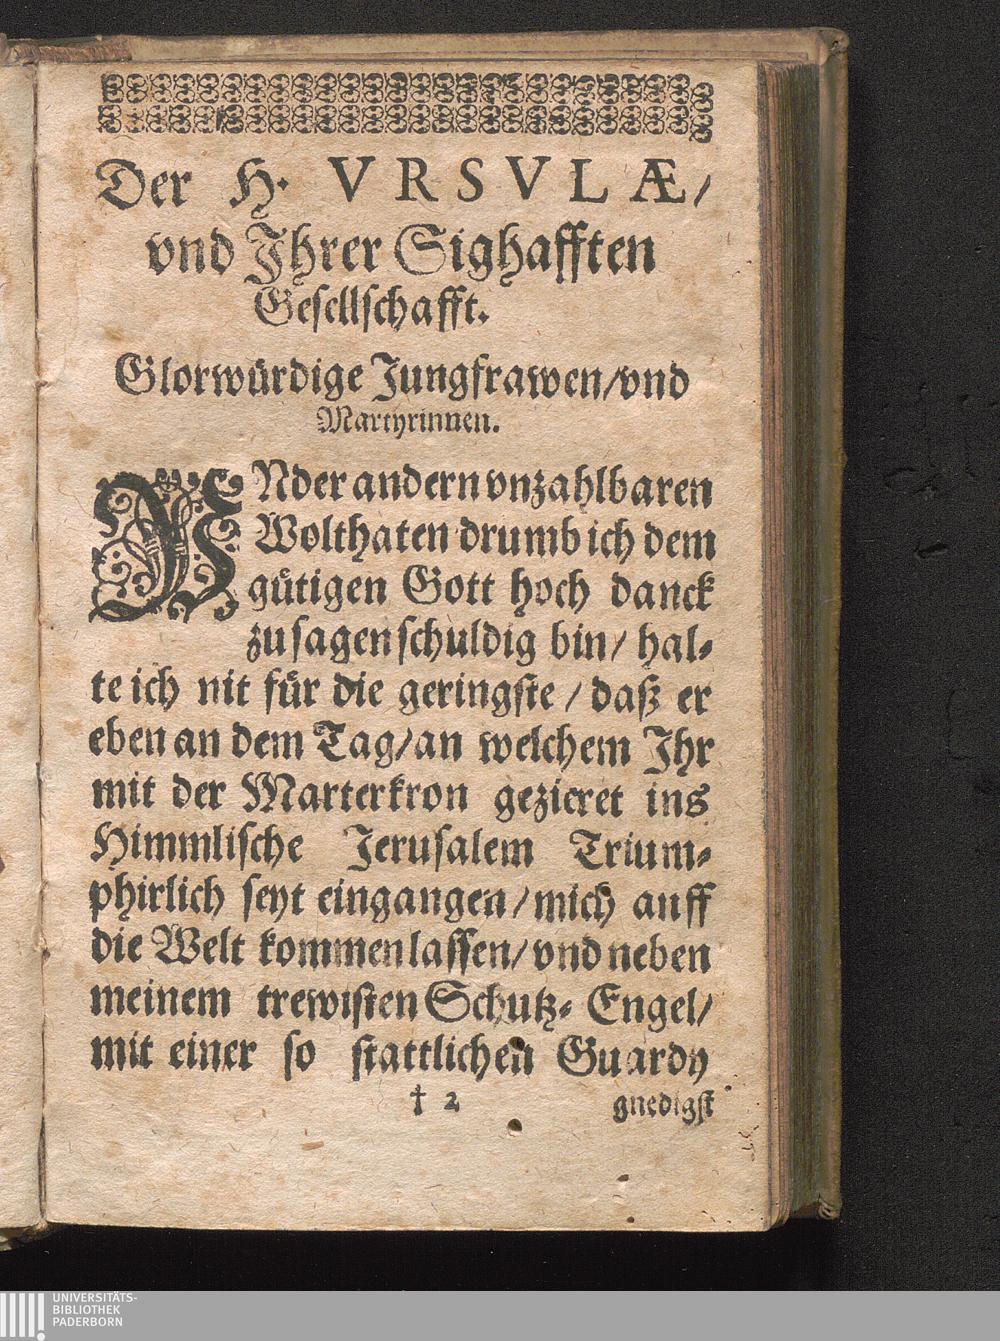 Der H. VRSVLÆ/
vnd Jhrer Sighafften
Gesellschafft.
Glorwürdige Jungfrawen/vnd
Martyrinnen.
VNder andern vnzahlbaren
Wolthaten drumb ich dem
gütigen Gott hoch danck
zu sagen schuldig bin/ hal-
te ich nit für die geringste/ daß er
eben an dem Tag/an welchem Jhr
mit der Marterkron gezieret ins
Himmlische Jerusalem Trium-
phirlich seyt eingangen/mich auff
die Welt kommen lassen/vnd neben
meinem trewisten Schutz- Engel/
mit einer so stattlichen Guardy
† 2 gnedigst
UNIVERSITÄTS-
BIBLIOTHEK
PADERBORN